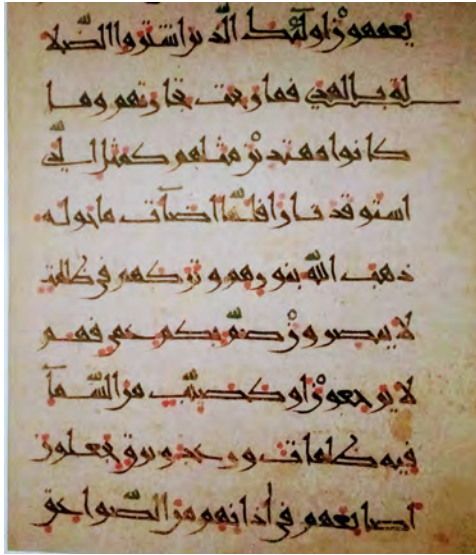 يعمهون اولئك الذين اشتروا الضلا
لة بالهدى فما ربحت تجارتهم وما
كانوا مهتدين مثلهم كمثل الذي
استوقد نارا فلما اضآت ما حوله
ذهب الله بنورهم وتركهم في ظلمت
لا يبصرون صم بكم عمي فهم
لا يرجعون او كصيب من السمآ
فيه ظلمات ورعد وبرق يجعلون
اصابعهم في اذانهم من الصواعق